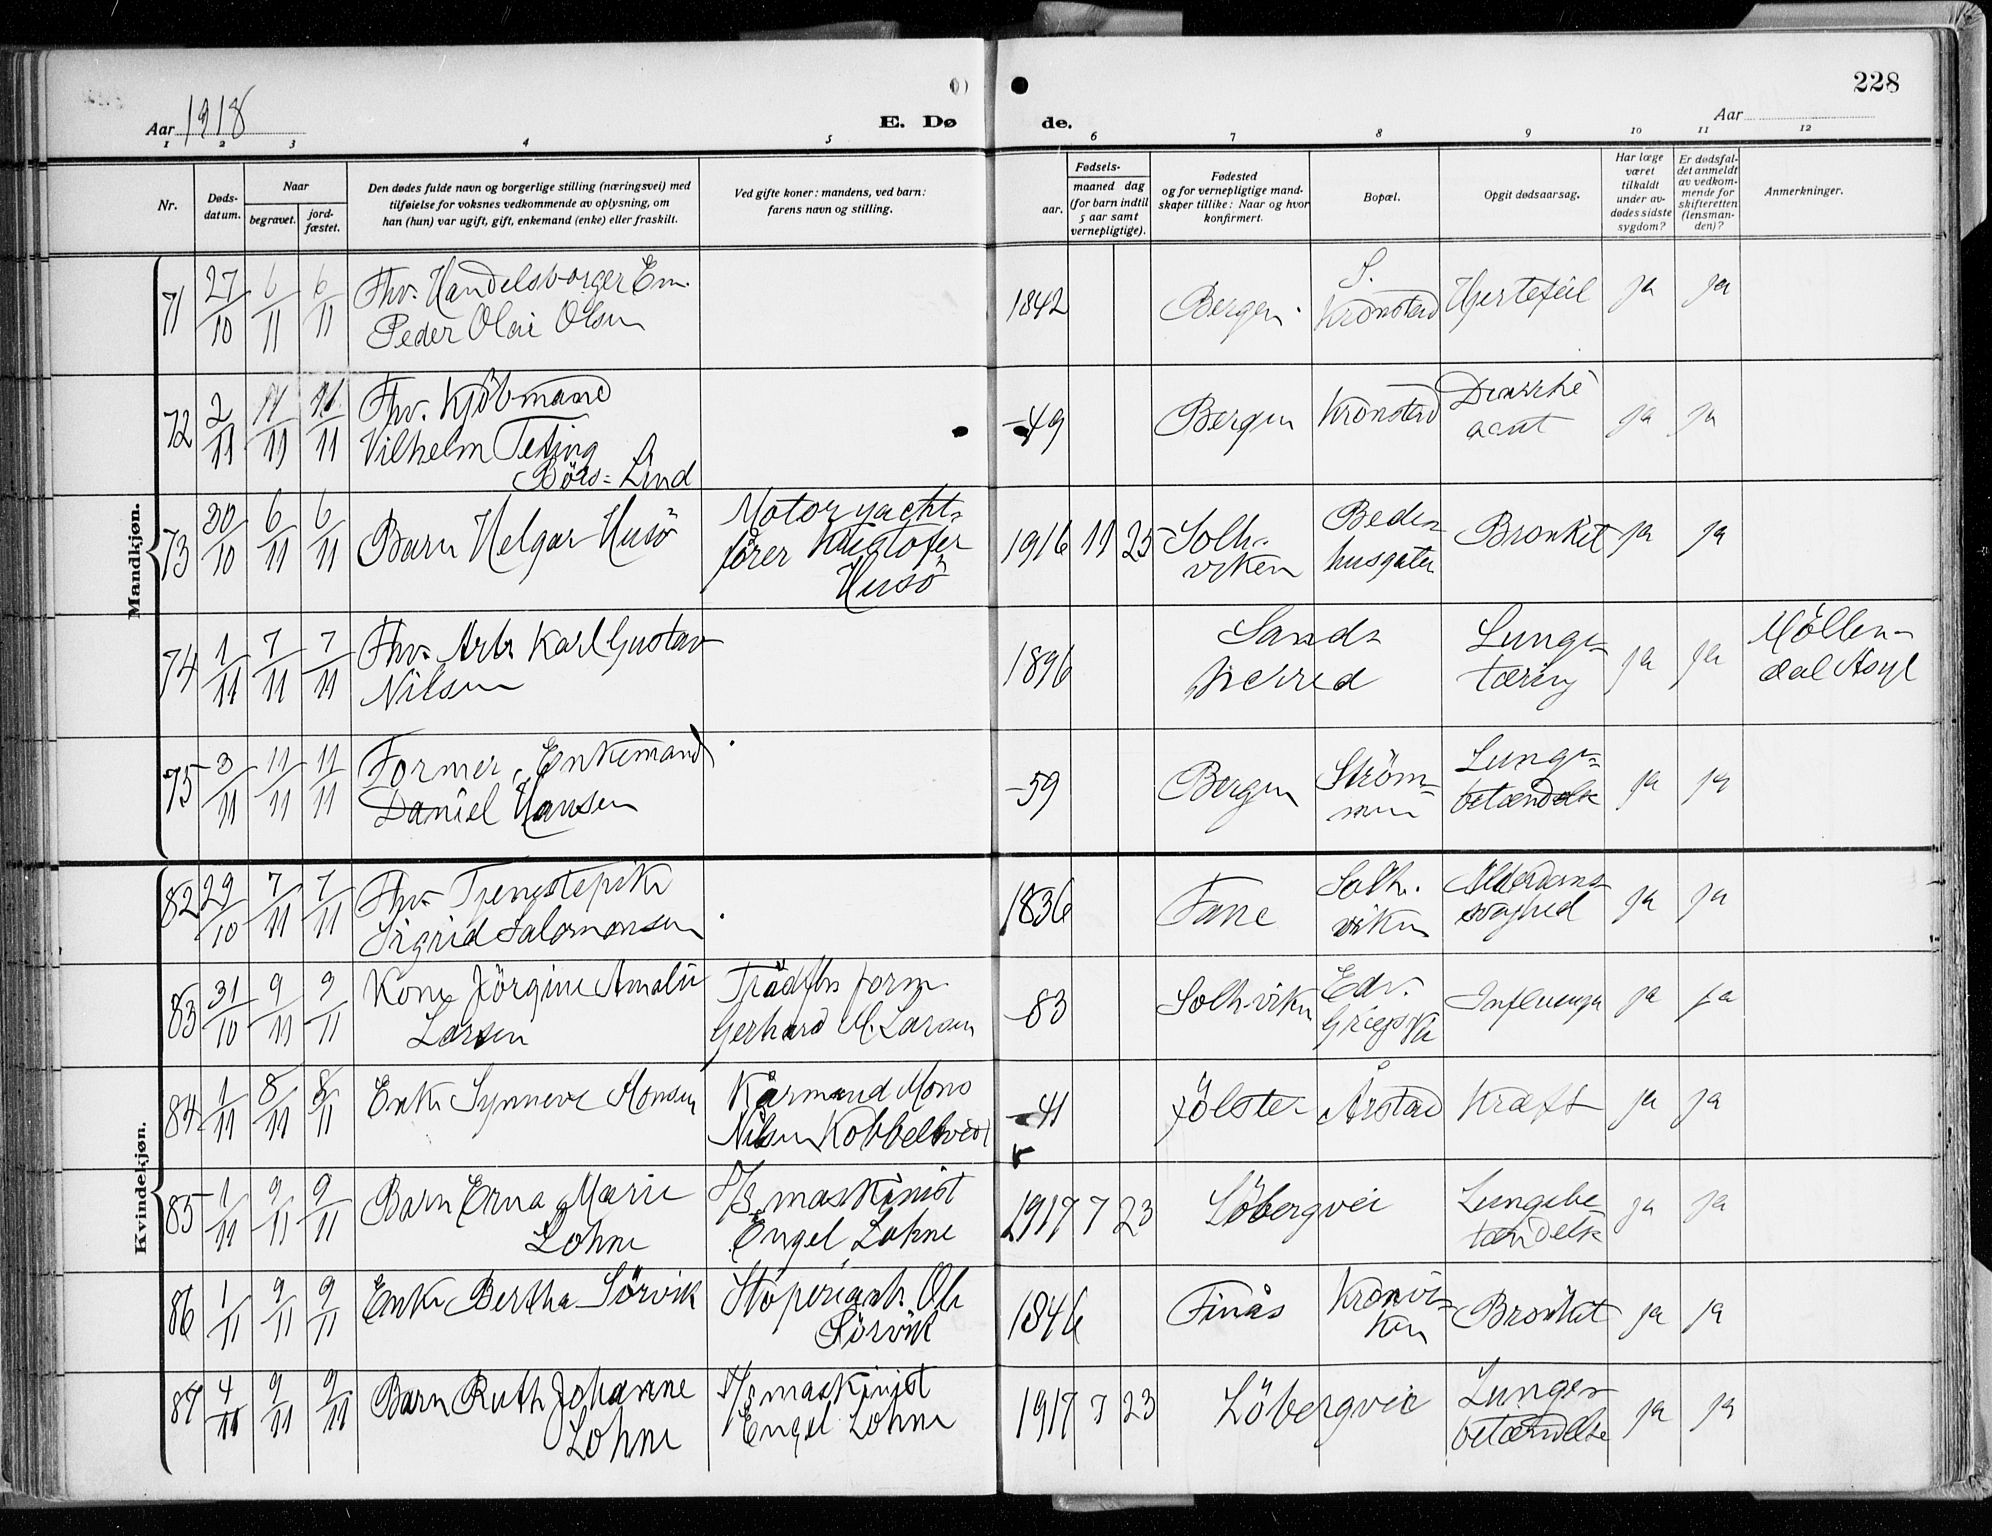 228
Aar 1918
E. Dø
de.
Aar
1 2 3 4 5 6 7 8 9 10 11 12
Nr.
Døds-
datum.
Naar
begravet.
jord-
fæstet.
Den dødes fulde navn og borgerlige stilling (næringsvei) med
tilføielse for voksnes vedkommende av oplysning, om
han (hun) var ugift, gift, enkemand (enke) eller fraskilt.
Ved gifte koner: mandens, ved barn:
farens navn og stilling.
Fødsels-
aar.
maaned dag
(for barn indtil
5 aar samt
vernepligtige).
Fødested
og for vernepligtige mand-
skaper tillike: Naar og hvor
konfirmert.
Bopæl.
Opgit dødsaarsag.
Har læge
været
tilkaldt
under av-
dødes sidste
sygdom?
Er dødsfal-
det anmeldt
av vedkom-
mende for
skifteretten
(lensman-
den)?
Anmerkninger.
Mandkjøn.
71 27/10 6/11 6/11 Fhv. Handelsborger Em.
Peder Olai Olsen
1842 Bergen S.
Kronstad Hjertefeil ja ja
72 2/11 11/11 11/11 Fhv. Kjöbmand
Vilhelm
Börs= Lind
-49 Bergen Kronstad
acut ja ja
73 30/10 6/11 6/11 Barn Helgar Husö
Motoryacht=
fører Kristofer
Husö
1916 11 25 Solh-
viken
Bede=
husgaten
Bronkit ja ja
74 1/11 7/11 7/11 Fhv. Arb. Karl Gustav
Nilsen
1896 Sands
herred
Lunge=
tæring ja ja
Möllen-
dal Asyl
75 3/11 11/11 11/11 Former, Enkemand
Daniel Hansen
-59 Bergen Ström=
men
Lunge=
betændelse ja ja
Kvindekjøn.
82 29/10 7/11 7/11 Fhv. Tjenestepike
Sigrid Salomonsen
1836 Fane Solh.
viken
Alderdoms
svaghed ja ja
83 31/10 9/11 9/11 Kone Jörgine Amalie
Larsen
form.
Gerhard M. Larsen
-83 Solhviken Edv.
Griegs
Influenza ja ja
84 1/11 8/11 8/11 Enke Synneve Monsen
Kårmand Mons
Nilsen Kobbeltvedt
-41 Jölster Årstad Kræft ja ja
85 1/11 9/11 9/11 Barn Erna Marie
Lohne
S/S maskinist
Engel Lohne
1917 7 23 Löbergvei
Lungebe
tændelse ja ja
86 1/11 9/11 9/11 Enke Bertha Sörvik
Stöperiarb. Ole
Sörvik
1846 Finås Kronvi=
ken
Bronkit ja ja
87 4/11 9/11 9/11 Barn Ruth Johanne
Lohne
S/S maskinist
Engel Lohne
1917 7 23 Löbergvei
Lunge=
betændelse ja ja